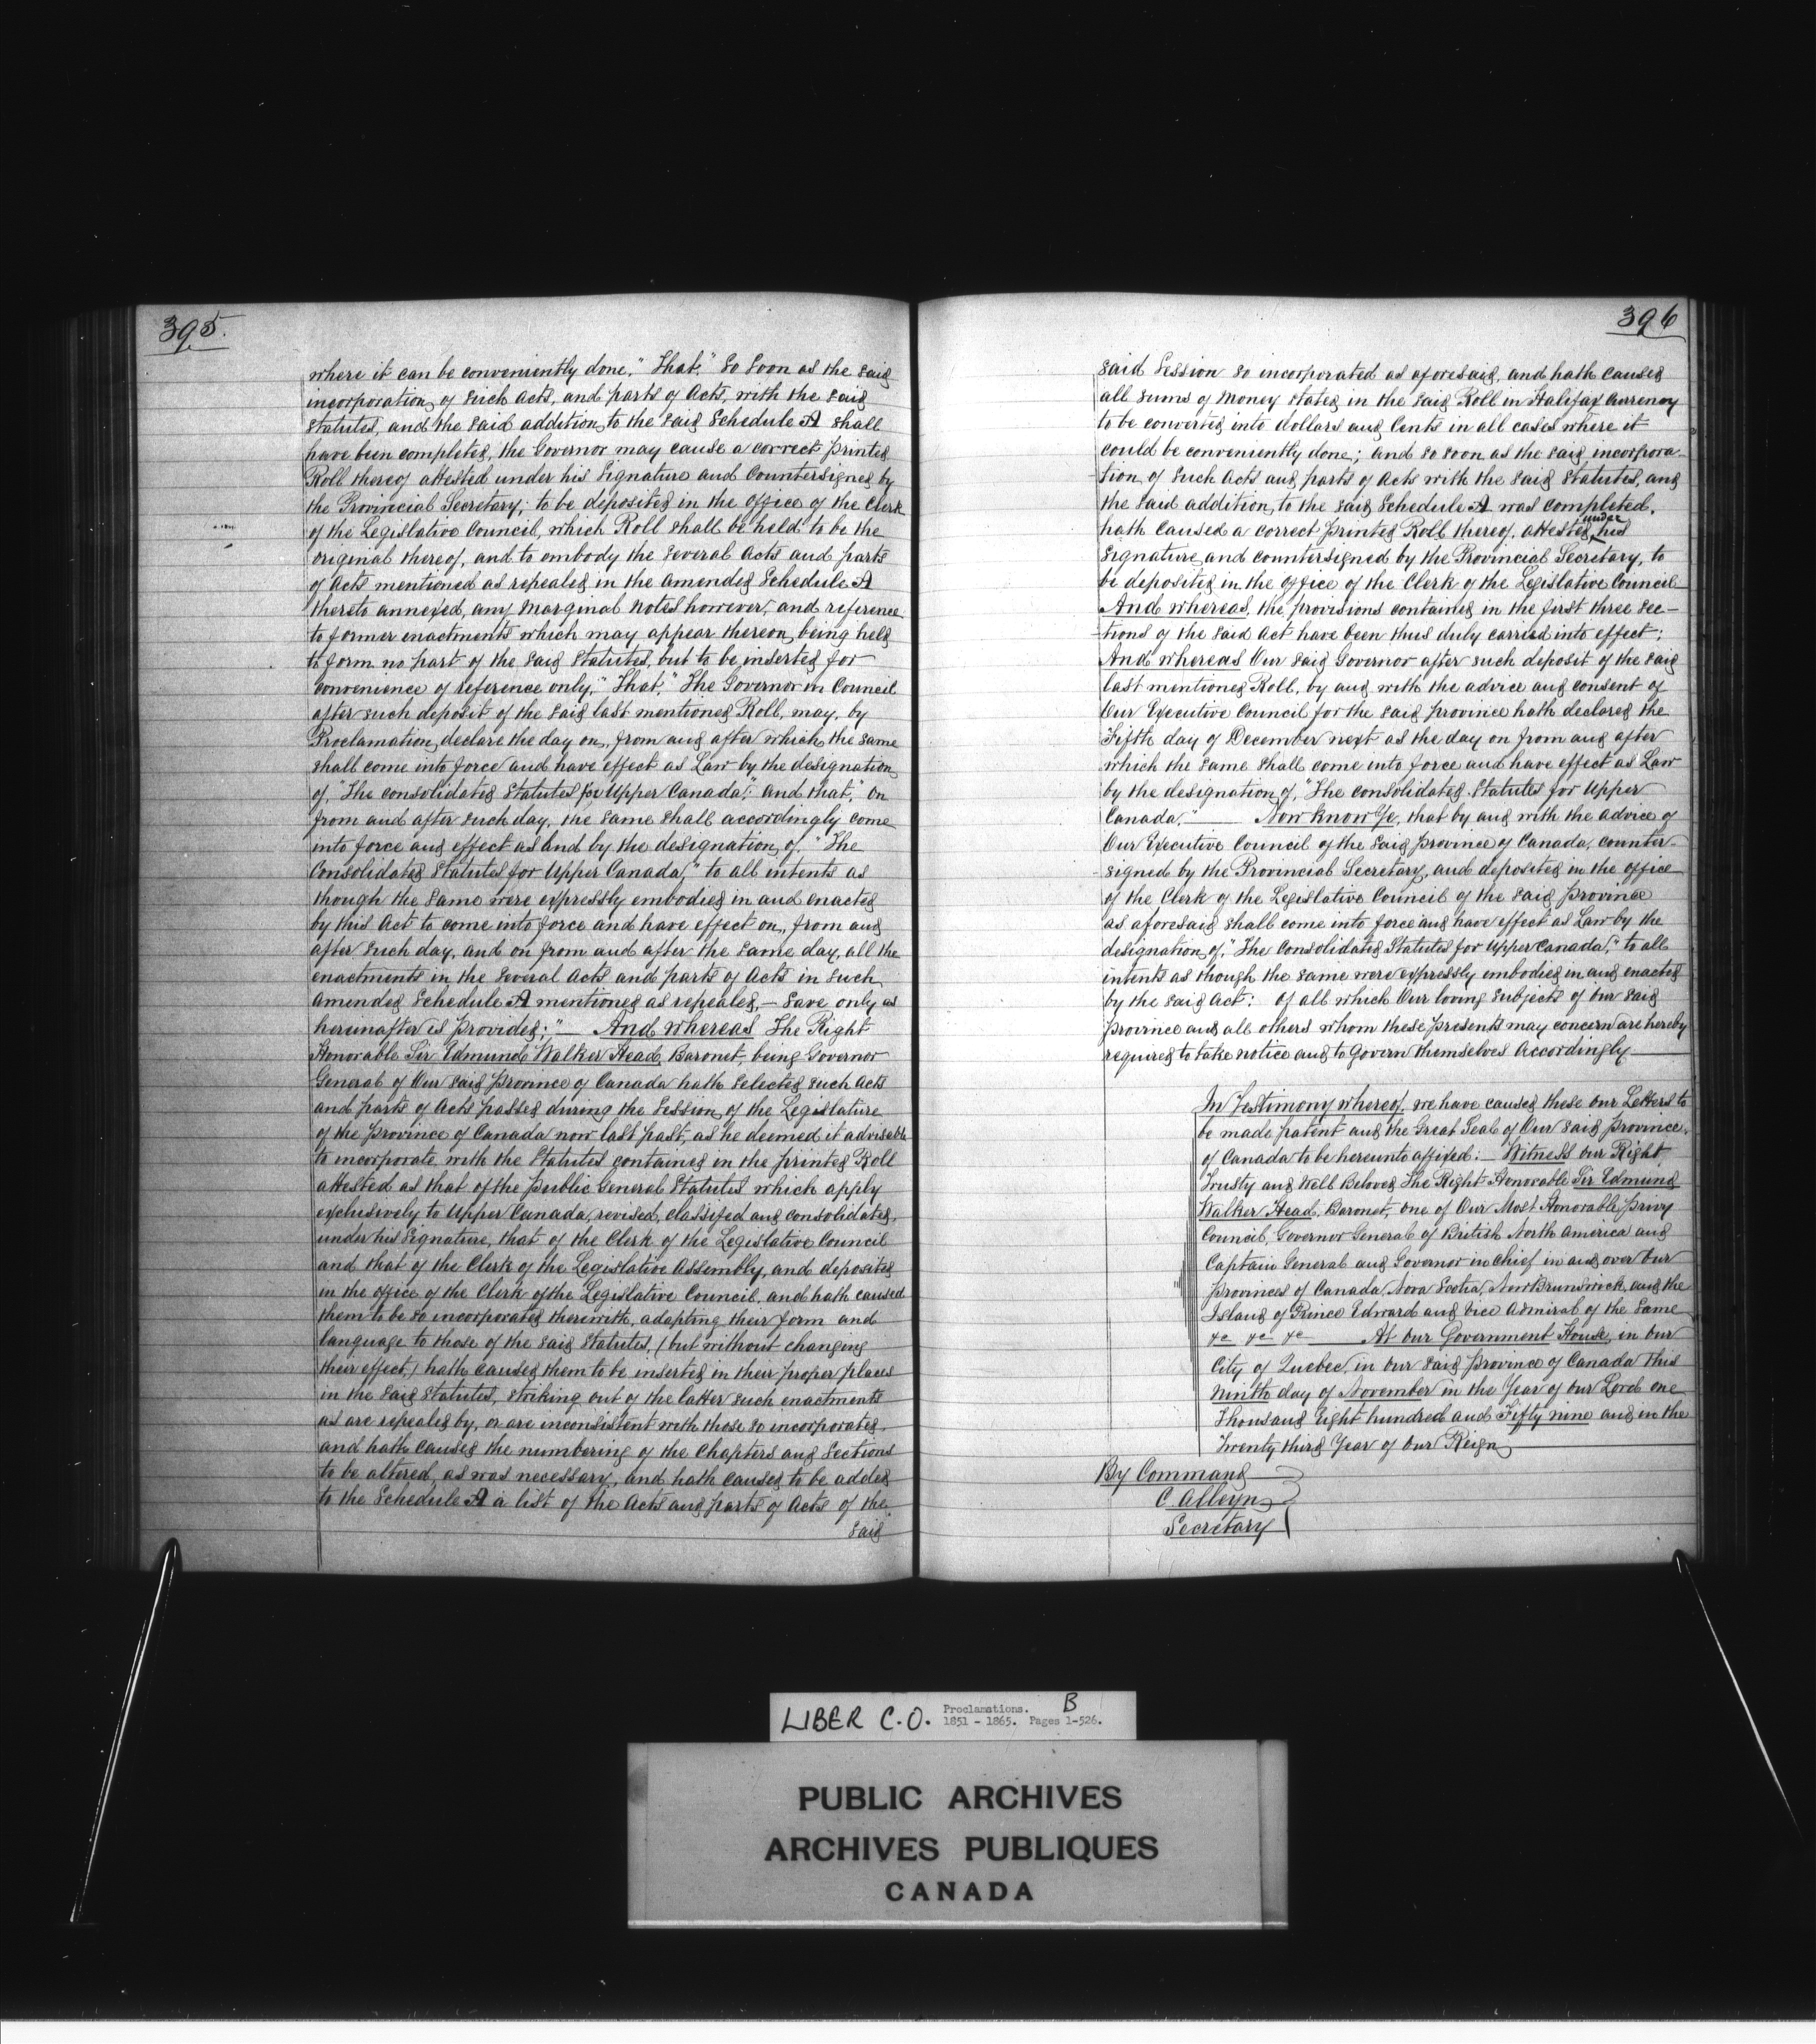 395.
where it can be conveniently done." That, "So soon as the said
incorporation of such Acts, and parts of Acts, with the said
Statutes, and the said addition to the said Schedule A shall
have been completed, the Governor may cause a correct printed
Roll thereof attested under his Signature and Countersigned by
the Provincial Secretary; to be deposited in the office of the Clerk
of the Legislative Council, which Roll shall be held to be the
original thereof, and to embody the several Acts and parts
of Acts mentioned as repealed in the amended Schedule A
thereto annexed, any marginal notes however, and reference
to former enactments which may appear thereon being held
to form no part of the said Statutes, but to be inserted for
convenience of reference only," "That," The Governor in Council
after such deposit of the said last mentioned Roll, may, by
Proclamation, declare the day on, from and after which the same
shall come into force and have effect as Law by the designation
of, "The consolidated Statutes for Upper Canada;" and that, "On
from and after such day, the same shall accordingly come
into force and effect as and by the designation of, "The
Consolidated Statutes for Upper Canada," to all intents as
though the same were expressly embodied in and enacted
by this Act to come into force and have effect on, from and
after such day, and on from and after the same day, all the
enactments in the several Acts and parts of Acts in such
amended Schedule A mentioned as repealed, – save only as
hereinafter is provided;" — And whereas The Right
Honorable Sir Edmund Walker Head, Baronet, being Governor
General of Our said province of Canada hath selected such Acts
and parts of Acts passed during the Session of the Legislature
of the province of Canada now last past, as he deemed it advisable
to incorporate with the Statutes contained in the printed Roll
attested as that of the public General Statutes which apply
exclusively to Upper Canada, revised, classified and consolidated,
under his Signature, that of the Clerk of the Legislative Council
and that of the Clerk of the Legislative Assembly, and deposited
in the office of the Clerk of the Legislative Council, and hath caused
them to be so incorporated therewith, adapting their form and
language to those of the said Statutes, (but without changing
their effect,) hath caused them to be inserted in their proper places
in the said Statutes, striking out of the latter such enactments
as are repealed by, or are inconsistent with those so incorporated,
and hath caused the numbering of the Chapters and Sections
to be altered, as was necessary, and hath caused to be added
to the Schedule A a list of the Acts and parts of Acts of the
said
396
said Session so incorporated as aforesaid, and hath caused
all sums of money stated in the said Roll in Halifax Currency
to be converted into dollars and Cents in all cases where it
could be conveniently done; and so soon as the said incorpora-
tion of such Acts and parts of Acts with the said Statutes, and
the said addition to the said Schedule A was completed,
hath caused a correct printed Roll thereof, attested under his
signature and countersigned by the Provincial Secretary, to
be deposited in the office of the Clerk of the Legislative Council
And whereas, the provisions contained in the first three Sec-
tions of the said Act have been thus duly carried into effect;
And whereas Our said Governor after such deposit of the said
last mentioned Roll, by and with the advice and consent of
Our Executive Council for the said province hath declared the
Fifth day of December next as the day on from and after
which the same shall come into force and have effect as Law
by the designation of, "The consolidated Statutes for Upper
Canada." — Now Know Ye, that by and with the advice of
Our Executive Council of the said province of Canada, counter-
signed by the Provincial Secretary, and deposited in the office
of the Clerk of the Legislative Council of the said province
as aforesaid shall come into force and have effect as Law by the
designation of, "The Consolidated Statutes for Upper Canada," to all
intents as though the same were expressly embodied in and enacted
by the said Act: of all which Our loving Subjects of our said
province and all others whom these presents may concern are hereby
required to take notice and to govern themselves accordingly —
In Testimony whereof, we have caused these our Letters to
be made patent and the Great Seal of Our said province,
of Canada to be hereunto affixed: – Witness our Right
Trusty and Well Beloved The Right Honorable Sir Edmund
Walker Head, Baronet, one of Our Most Honorable privy
Council, Governor General of British North America and
Captain General and Governor in Chief in and over Our
provinces of Canada, Nova Scotia, New Brunswick, and the
Island of Prince Edward and Vice Admiral of the same
&c &c &c — At our Government House, in Our
City of Quebec, in our said province of Canada this
Ninth day of November in the Year of our Lord one
Thousand Eight hundred and Fifty nine and in the
Twenty third Year of Our Reign
By Command
C. Alleyn
Secretary
LIBER C.O. Proclamations. B
1851 - 1865. Pages 1-526.
PUBLIC ARCHIVES
ARCHIVES PUBLIQUES
CANADA